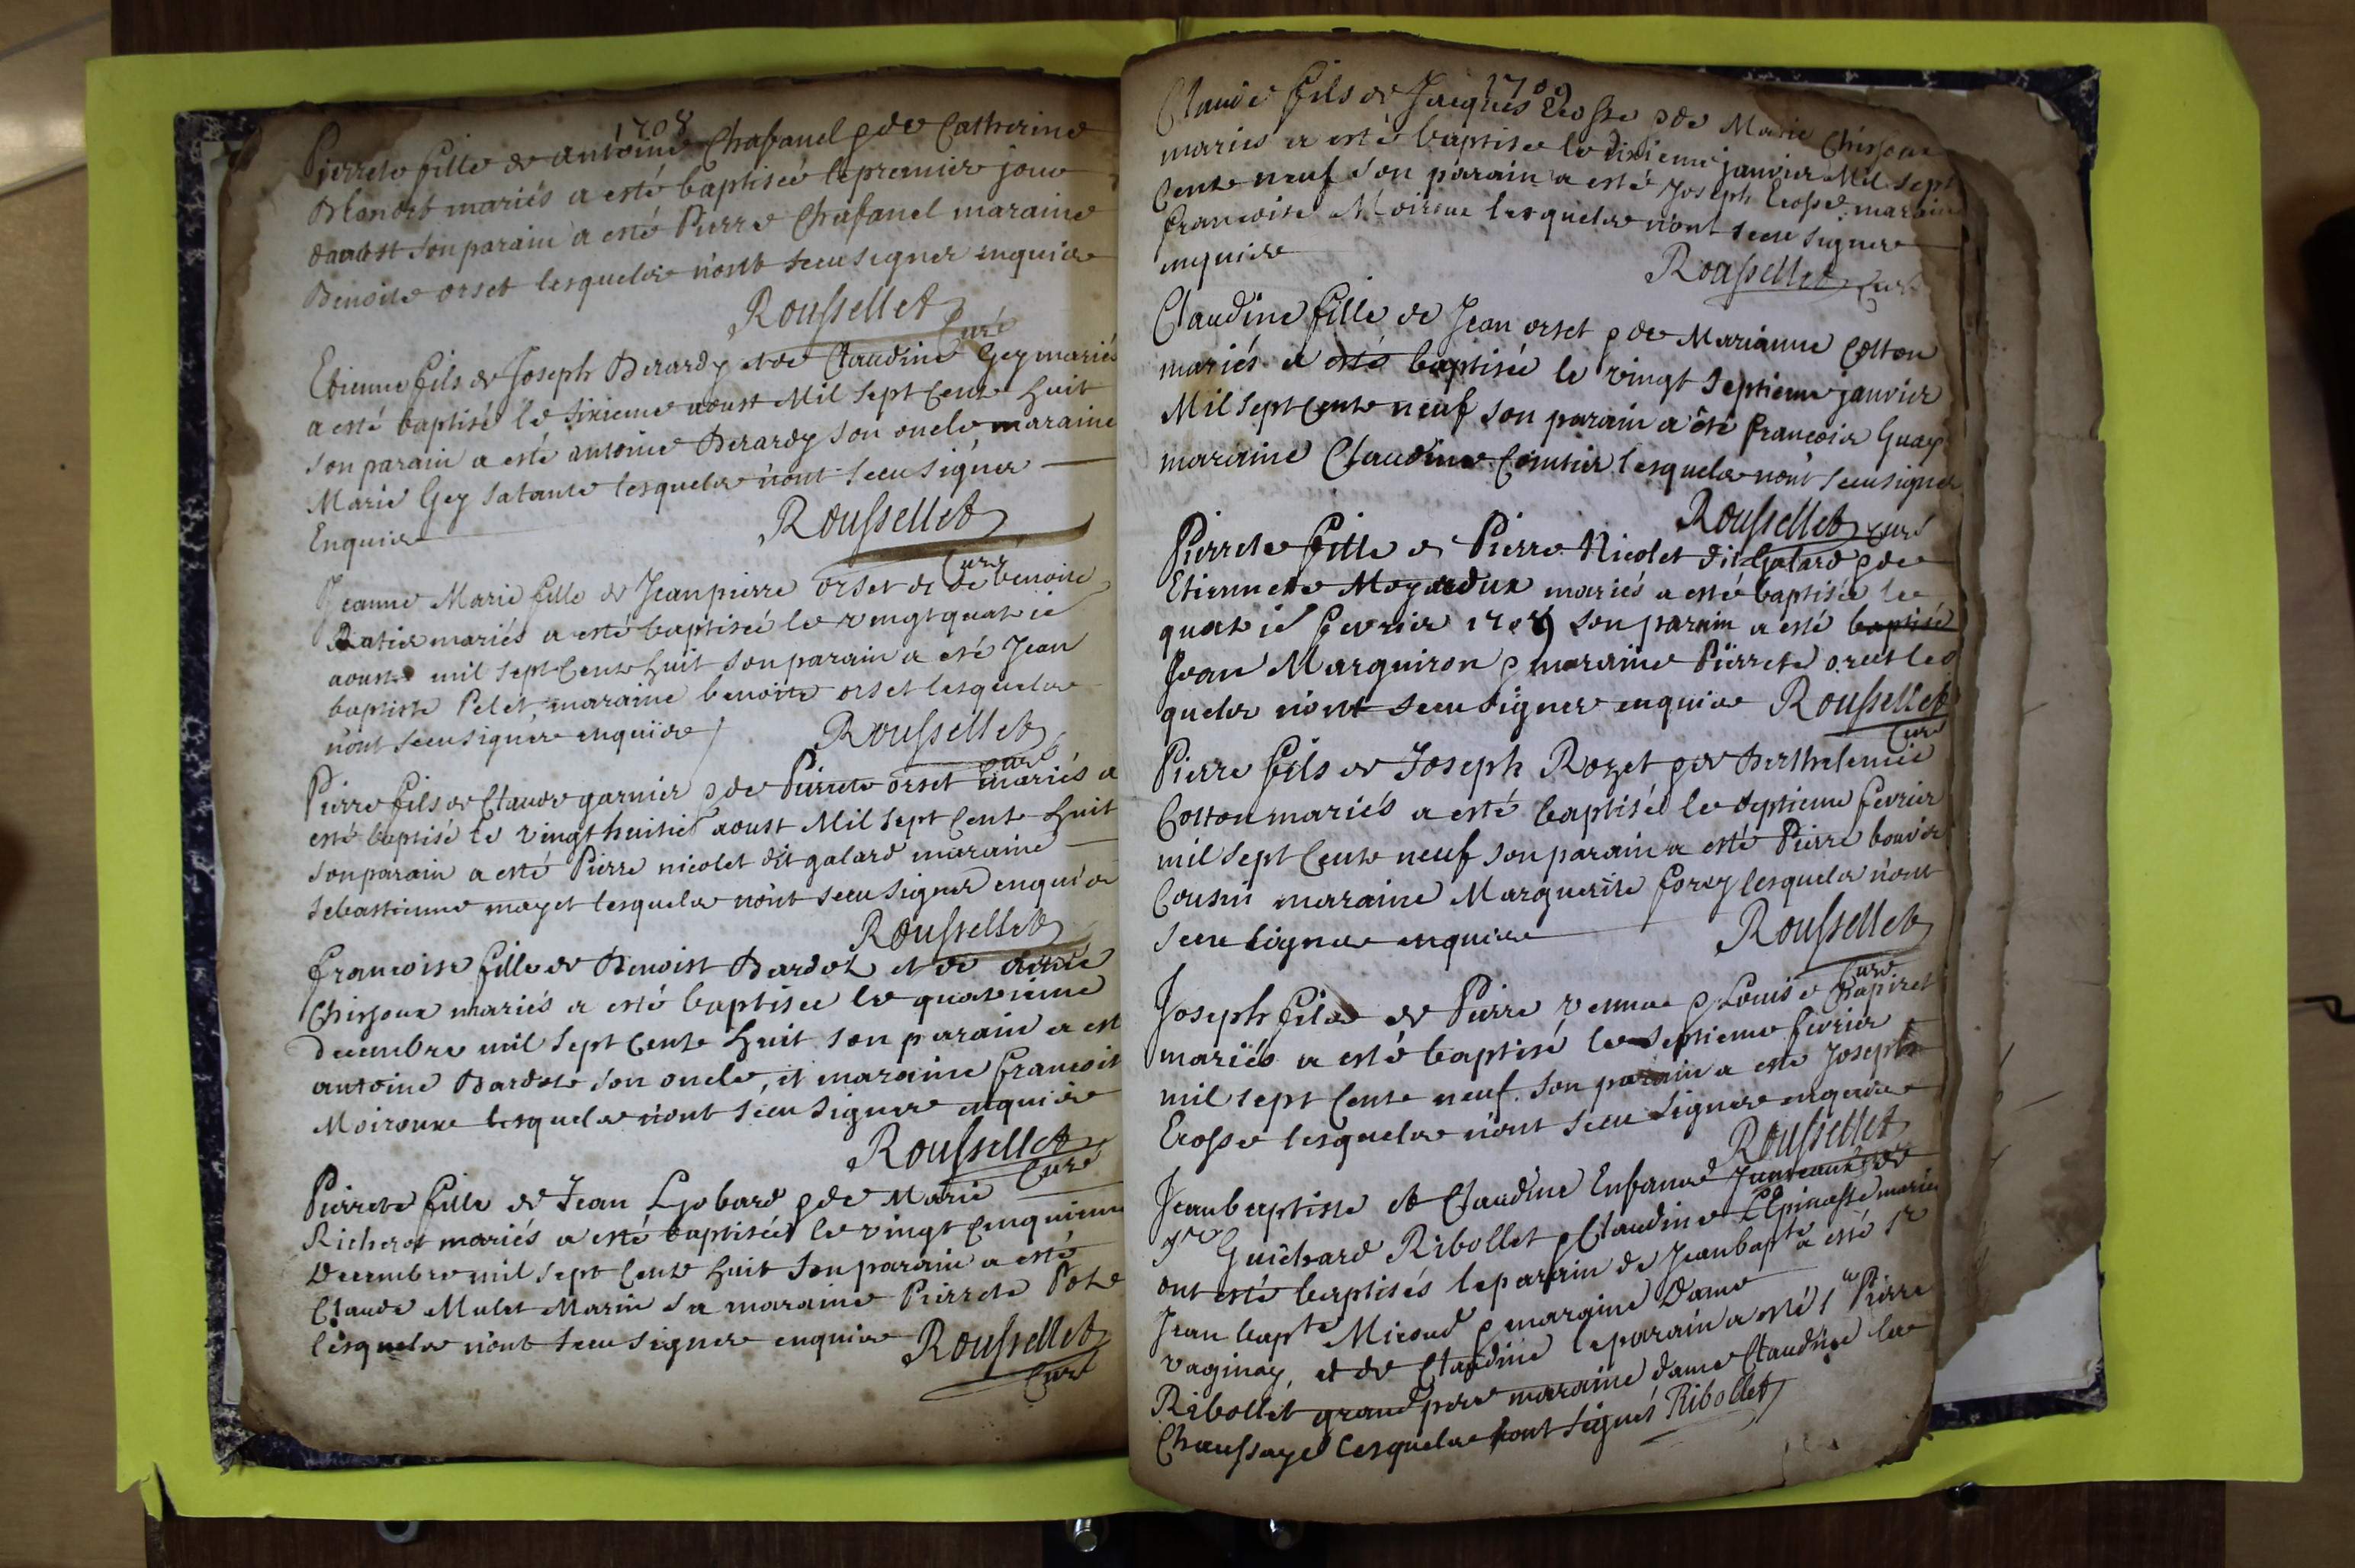 1708
Pierrete fille de antoine Chafanel & de Catherine
mariés a esté baptisée le premier jour
daoust son parain a esté Pierre Chafanel maraine
Benoite orset lesquels n'ont sceu signer enquis
Roussellet
Curé
Etienne fils de Joseph Berardy et de Claudine Gey mariés
a esté baptisé le sixieme aoust Mil sept Cents huit
son parain a esté antoine Berardy son oncle, maraine
Marie Gey sa tante lesquels n'ont sceu signer
Enquis
Roussellet
Curé
Jeanne Marie fille de Jeanpierre orset et de benoite
Ratier mariés a esté baptisée le vingtquat ié
aoust mil sept Cents huit son parain a esté Jean
baptiste Pelet, maraine benoite orset lesquels
n'ont sceu signer enquis
Roussellet
Curé
Pierre fils de Claude garnier & de Pierrete orset mariés a
esté baptisé le vingt huitié aoust Mil sept Cents huit
son parain a esté Pierre nicolet dit galard maraine
sebastienne mayet lesquels n'ont sceu signer enquis
Roussellet
francoise fille de Benoist Bardot et de
Chirsoux mariés a esté baptisée le quatrieme
decembre mil sept Cents huit son parain a est
antoine Bardot son oncle, et maraine francois
Moiroux lesquels n'ont sceu signer enquis
Roussellet
Curé
Pierrete fille de Jean Lyobard & de Marie
Richerot mariés a esté baptisée le vingt Cinquieme
Decembre mil sept Cents huit son parain a esté
Claude Mulet Marin sa maraine Pierrete Pote
lesquels n'ont sceu signer enquis Roussellet
Curé
1709
Claude fils de Jacques Crosse & de Marie Chirsoux
mariés a esté baptisé le dixieme janvier Mil sept
Cents neuf son parain a esté Joseph Crosse maraine
francoise Moiroux lesquels n'ont sceu signer
enquis
Roussellet Curé
Claudine fille de Jean orset & de Marianne Cotton
mariés a esté baptisée le vingt septieme janvier
Mil sept Cents neuf son parain a été francois Guay
maraine Claudine lesquels n'ont sceu signer
Roussellet Curé
Pierrete fille de Pierre Nicolet dit Galard & de
Etiennete mariés a esté baptisée le
quat ié fevrier 1709 son parain a esté baptisé
Jean Marguiron & maraine Pierrete orset les
quels n'ont sceu signer enquis Roussellet
Curé
Pierre fils de Joseph Rozet & de Berthelemie
Cotton mariés a esté baptisé le septieme fevrier
mil sept Cents neuf son parain a esté Pierre bouvier
Cousin maraine Marguerite forey lesquels n'ont
sceu signer enquis
Roussellet
Curé
Joseph fils de Pierre & Louise Chapiret
mariés a esté baptisé le septieme fevrier
mil sept Cents neuf son parain a esté Joseph
Crosse lesquels n'ont sceu signer enquis
Roussellet
Jeanbaptiste et Claudine Enfants Jumeaux de
Guichard Ribollet & Claudine L'Epinasse mariés
ont esté baptisés le parain de Jeanbapte a esté Sr
Jean bapte Micoud & maraine Dame
vaginay, et de Claudine le parain a esté Sr Pierre
Ribollet grand pere maraine dame Claudine la
Chaussaye lesquels ont signés Ribollet